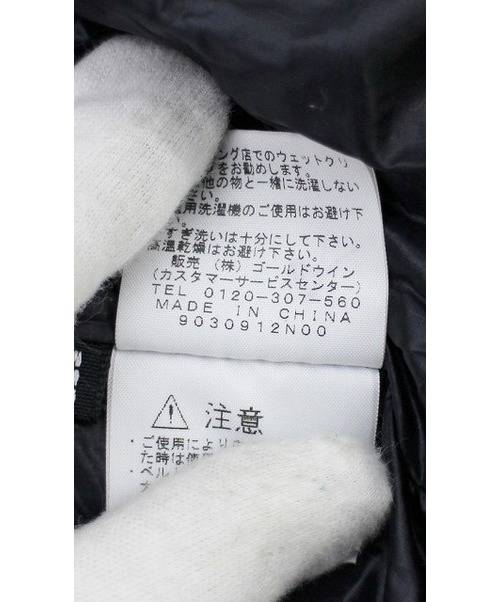 ング店でのウェットクリ
をお勧めします。
他の物と一緒に洗濯しない
さい。
用洗濯機のご使用はお避け下
い。
すぎ洗いは十分にして下さい。
高温乾燥はお避け下さい。
販売 (株) ゴールドウイン
(カスタマーサービスセンター)
TEL 0120-307-560
MADE IN CHINA
9030912N00
注意
・ご使用により
た時は使用
・ベル